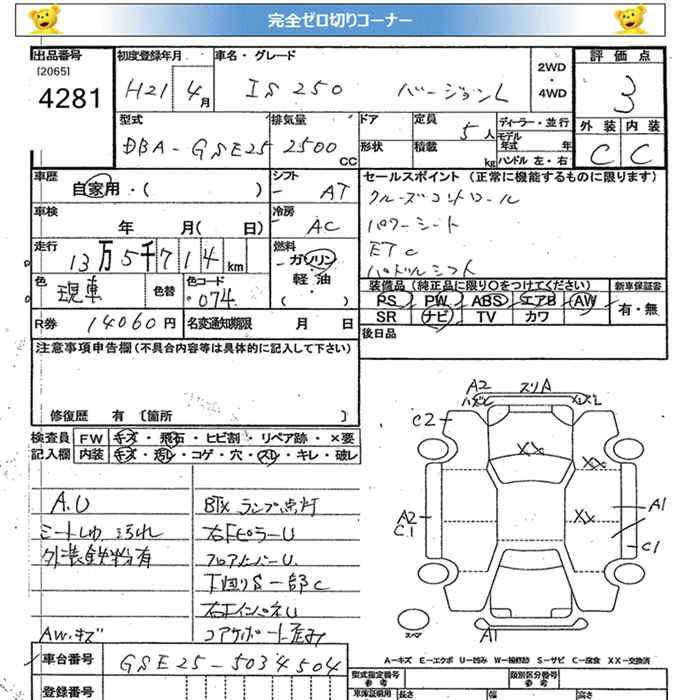 完全ゼロ切りコーナー
出品番号 初度登録年月 車名・グレード 2WD・4WD 評価点
[2065]
4281 H21 4月 IS250 バージョンL 3
型式 排気量 ドア 定員 ディーラー・並行 外装 内装
DBA-GSE25 2500CC 形状 積載 5人 kg モデル年式 年 ハンドル 左・右 C C
車歴 自家用・( ) シフト - AT セールスポイント (正常に機能するものに限ります)
車検 年 月( 日) 冷房 AC クルーズコントロール
パワーシート
走行 13万5千714km 燃料 - ガソリン・軽油・( ) ETC
パドルシフト
色 現車 色替 色コード 074 装備品(純正品に限り○をつけてください) 新車保証書
PS PW ABS エアB AW 有・無
SR ナビ TV カワ
R券 14060円 名変通知期限 月 日 後日品
注意事項申告欄(不具合内容等は具体的に記入して下さい)
修復歴 有 [箇所 ]
検査員記入欄 FW キズ・飛石・ヒビ割・リペア跡・×要
内装 キズ・汚レ・コゲ・穴・スレ・キレ・破レ
A.U
シートしゅ 汚れ
外装鉄粉有
AW.キズ
BTX ランプ点灯
右Fピラー U
フロアメンバー U.
下回りS 一部C
右インパネU
コアサポート歪み
A2 スリA
C2
XX
XX
XX
A2
C1
A1
C1
A1
スペア
A=キズ E=エクボ U=凹み W=補修跡 S=サビ C=腐食 XX=交換済
車台番号 GSE25-5034504
登録番号
型式指定番号 参考 類別区分番号 参考
車庫証明用 長さ 幅 高さ